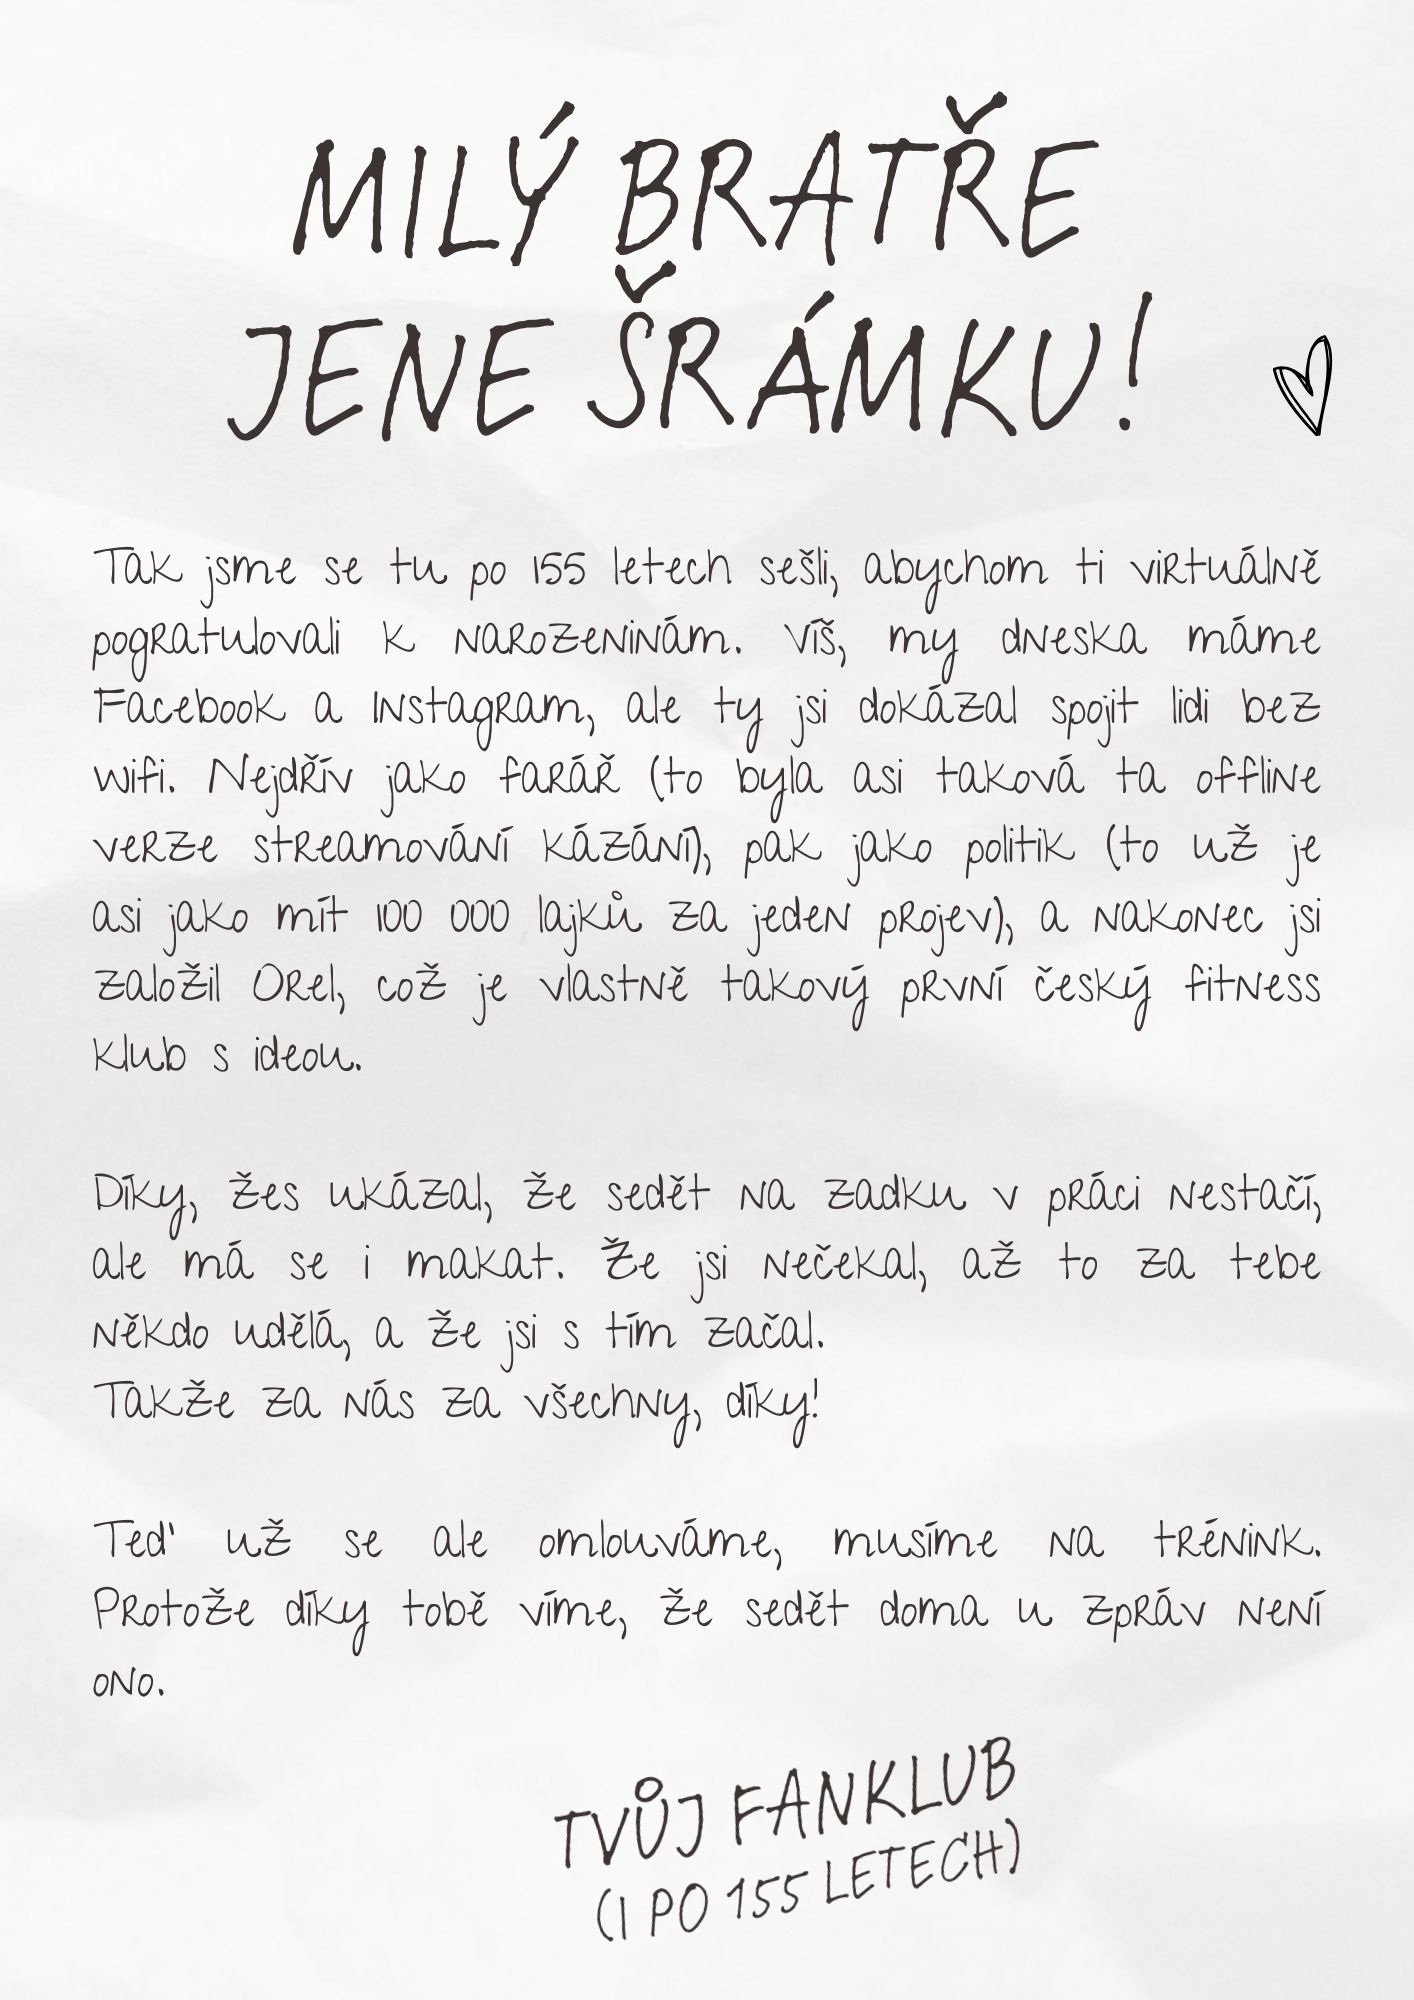 MILÝ BRATŘE
JENE ŠRÁMKU!
Tak jsme se tu po 155 letech sešli, abychom ti virtuálně
pogratulovali k narozeninám. Víš, my dneska máme
Facebook a Instagram, ale ty jsi dokázal spojit lidi bez
wifi. Nejdřív jako farář (to byla asi taková ta offline
verze streamování kázání), pak jako politik (to už je
asi jako mít 100 000 lajků za jeden projev), a nakonec jsi
založil Orel, což je vlastně takový první český fitness
klub s ideou.
Díky, žes ukázal, že sedět na zadku v práci nestačí,
ale má se i makat. Že jsi nečekal, až to za tebe
někdo udělá, a že jsi s tím začal.
Takže za nás za všechny, díky!
Teď už se ale omlouváme, musíme na trénink.
Protože díky tobě víme, že sedět doma u zpráv není
ono.
TVŮJ FANKLUB
(I PO 155 LETECH)